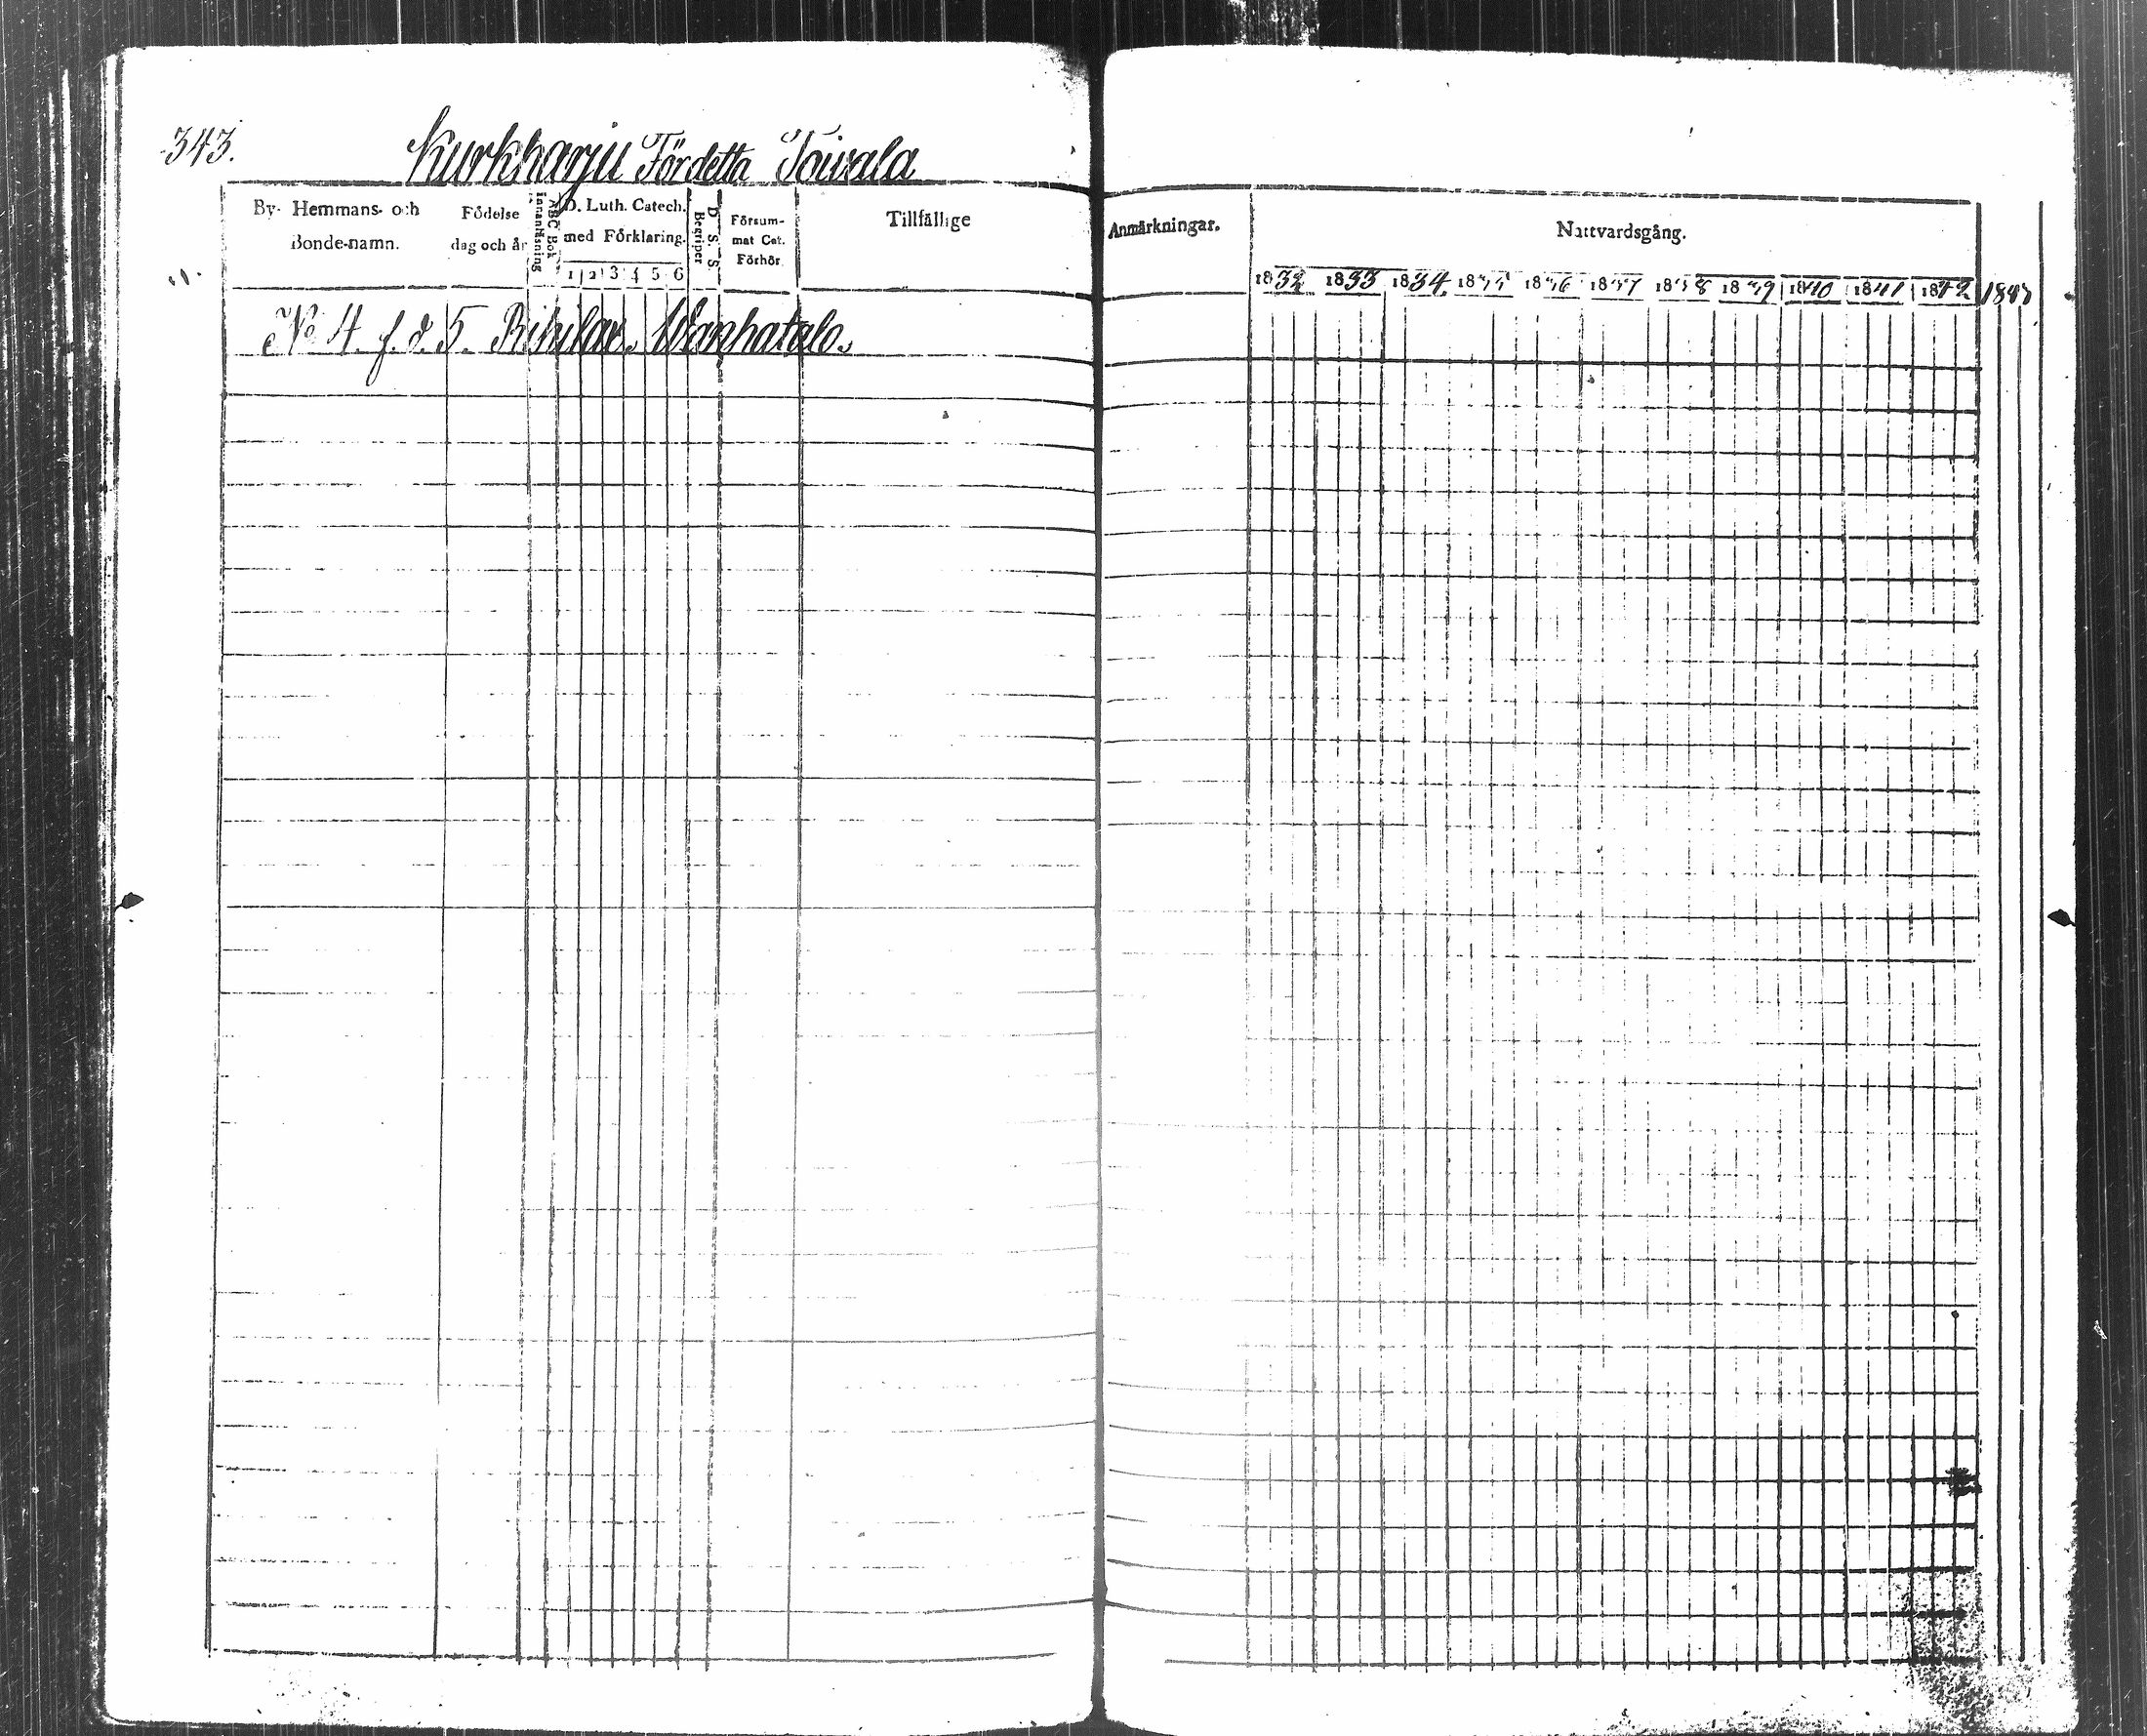 343.
Kurkharju För detta Toivala
By- Hemmans- och Bonde-namn.
Födelse dag och år
Innanläsning
ABC Bok
D. Luth. Catech. med Förklaring.
1 2 3 4 5 6
Begriper
D. S. S.
Försum- mat Cat. Förhör
Tillfällige
Anmärkningar.
Nattvardsgång.
1832 1833 1834 1835 1836 1837 1838 1839 1840 1841 1842 1843
No 4. f. d. 5. Wanhatalo.